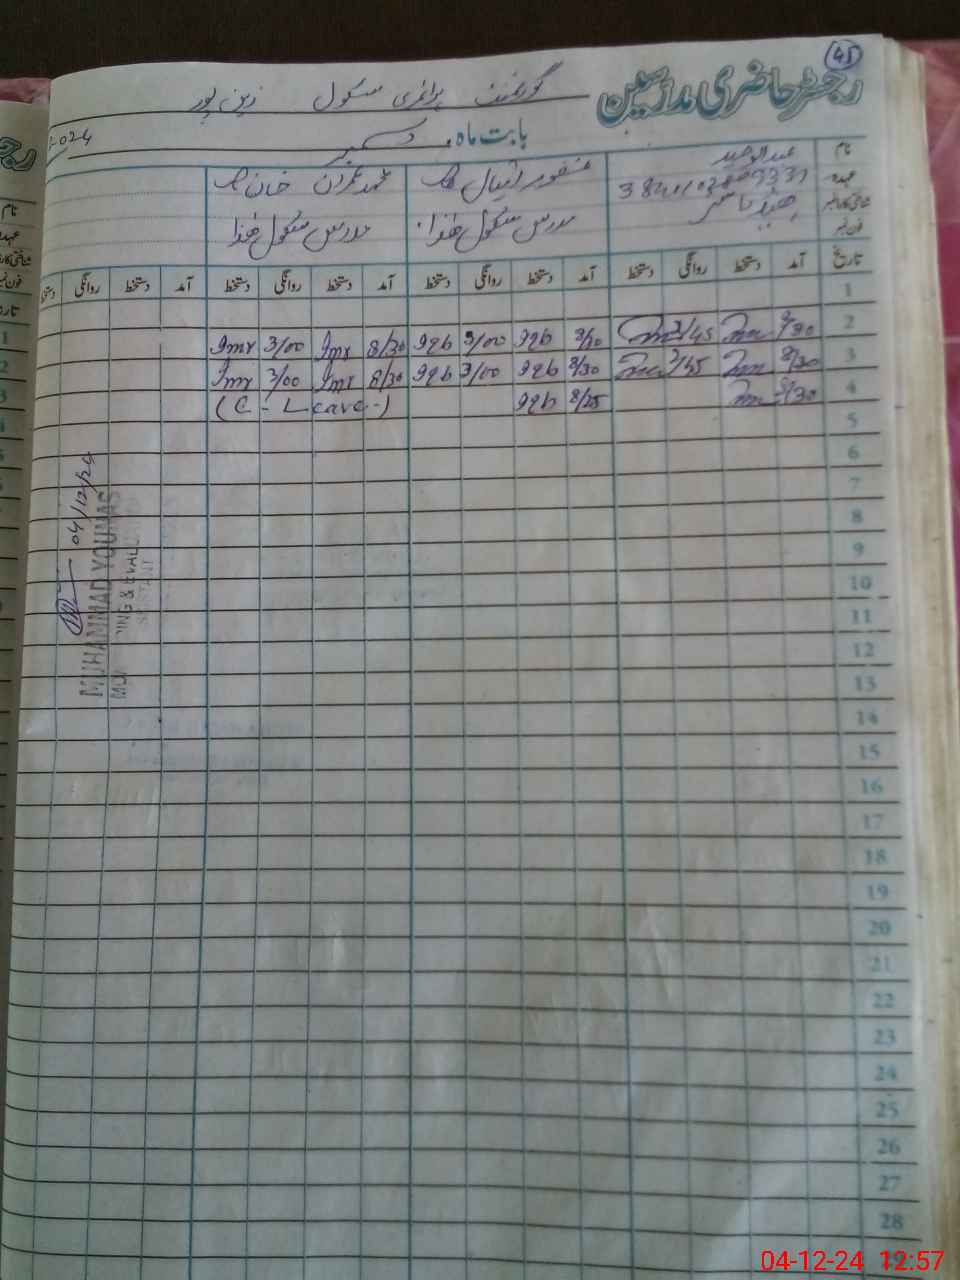 45
رجسٹر حاضری مدرسین
گورنمنٹ پرائمری سکول زین پور
بابت ماہ دسمبر
نام عبدالوحید منظور اقبال محمد عمران خان
عہدہ
شناختی کارڈ نمبر ہیڈ ماسٹر مدرس سکول ھٰذا مدرس سکول ھٰذا
فون نمبر
تاریخ آمد دستخط روانگی دستخط آمد دستخط روانگی دستخط آمد دستخط روانگی دستخط آمد دستخط روانگی دستخط
1
2 8/30 3/45 3/00 8/30 Imr 3/00 Imr
3 8/30 3/45 8/30 3/00 8/30 Imr 3/00 Imr
4 8/30 8/25 (C-Leave-)
5
6
7
8
9
10
11
12
13
14
15
16
17
18
19
20
21
22
23
24
25
26
27
28
04/12/24
MUHAMMAD YOUNAS
04-12-24 12:57